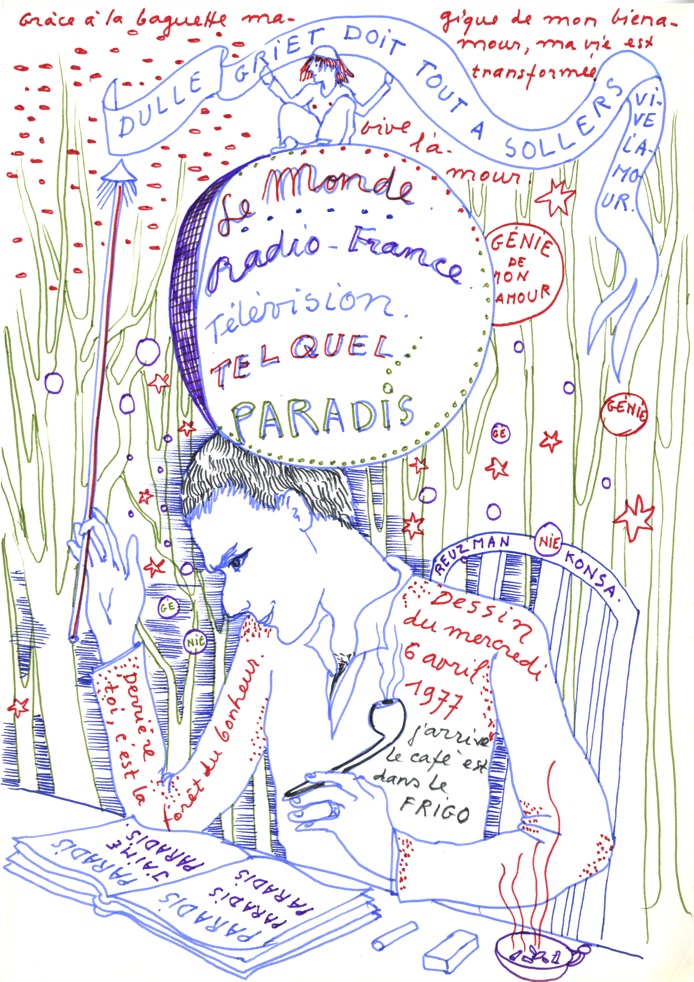 Grâce à la baguette ma-
gique de mon biena-
mour, ma vie est
transformée
DULLE GRIET DOIT TOUT A SOLLERS
VI-
VE
L'A-
MO
UR.
vive l'a-
mour
Le Monde
Radio-France
Télévision.
TEL QUEL
PARADIS
GÉNIE
DE
MON
AMOUR
GÉNIE
GÉ
NIE
REUZMAN
KONSA.
GÉ
NIE
Dessin
du mercredi
6 avril
1977
j'arrive
le café est
dans le
FRIGO
Derrière
toi, c'est la
forêt du bonheur.
PARADIS
J'AIME
PARADIS
PARADIS
PARADIS
PARADIS